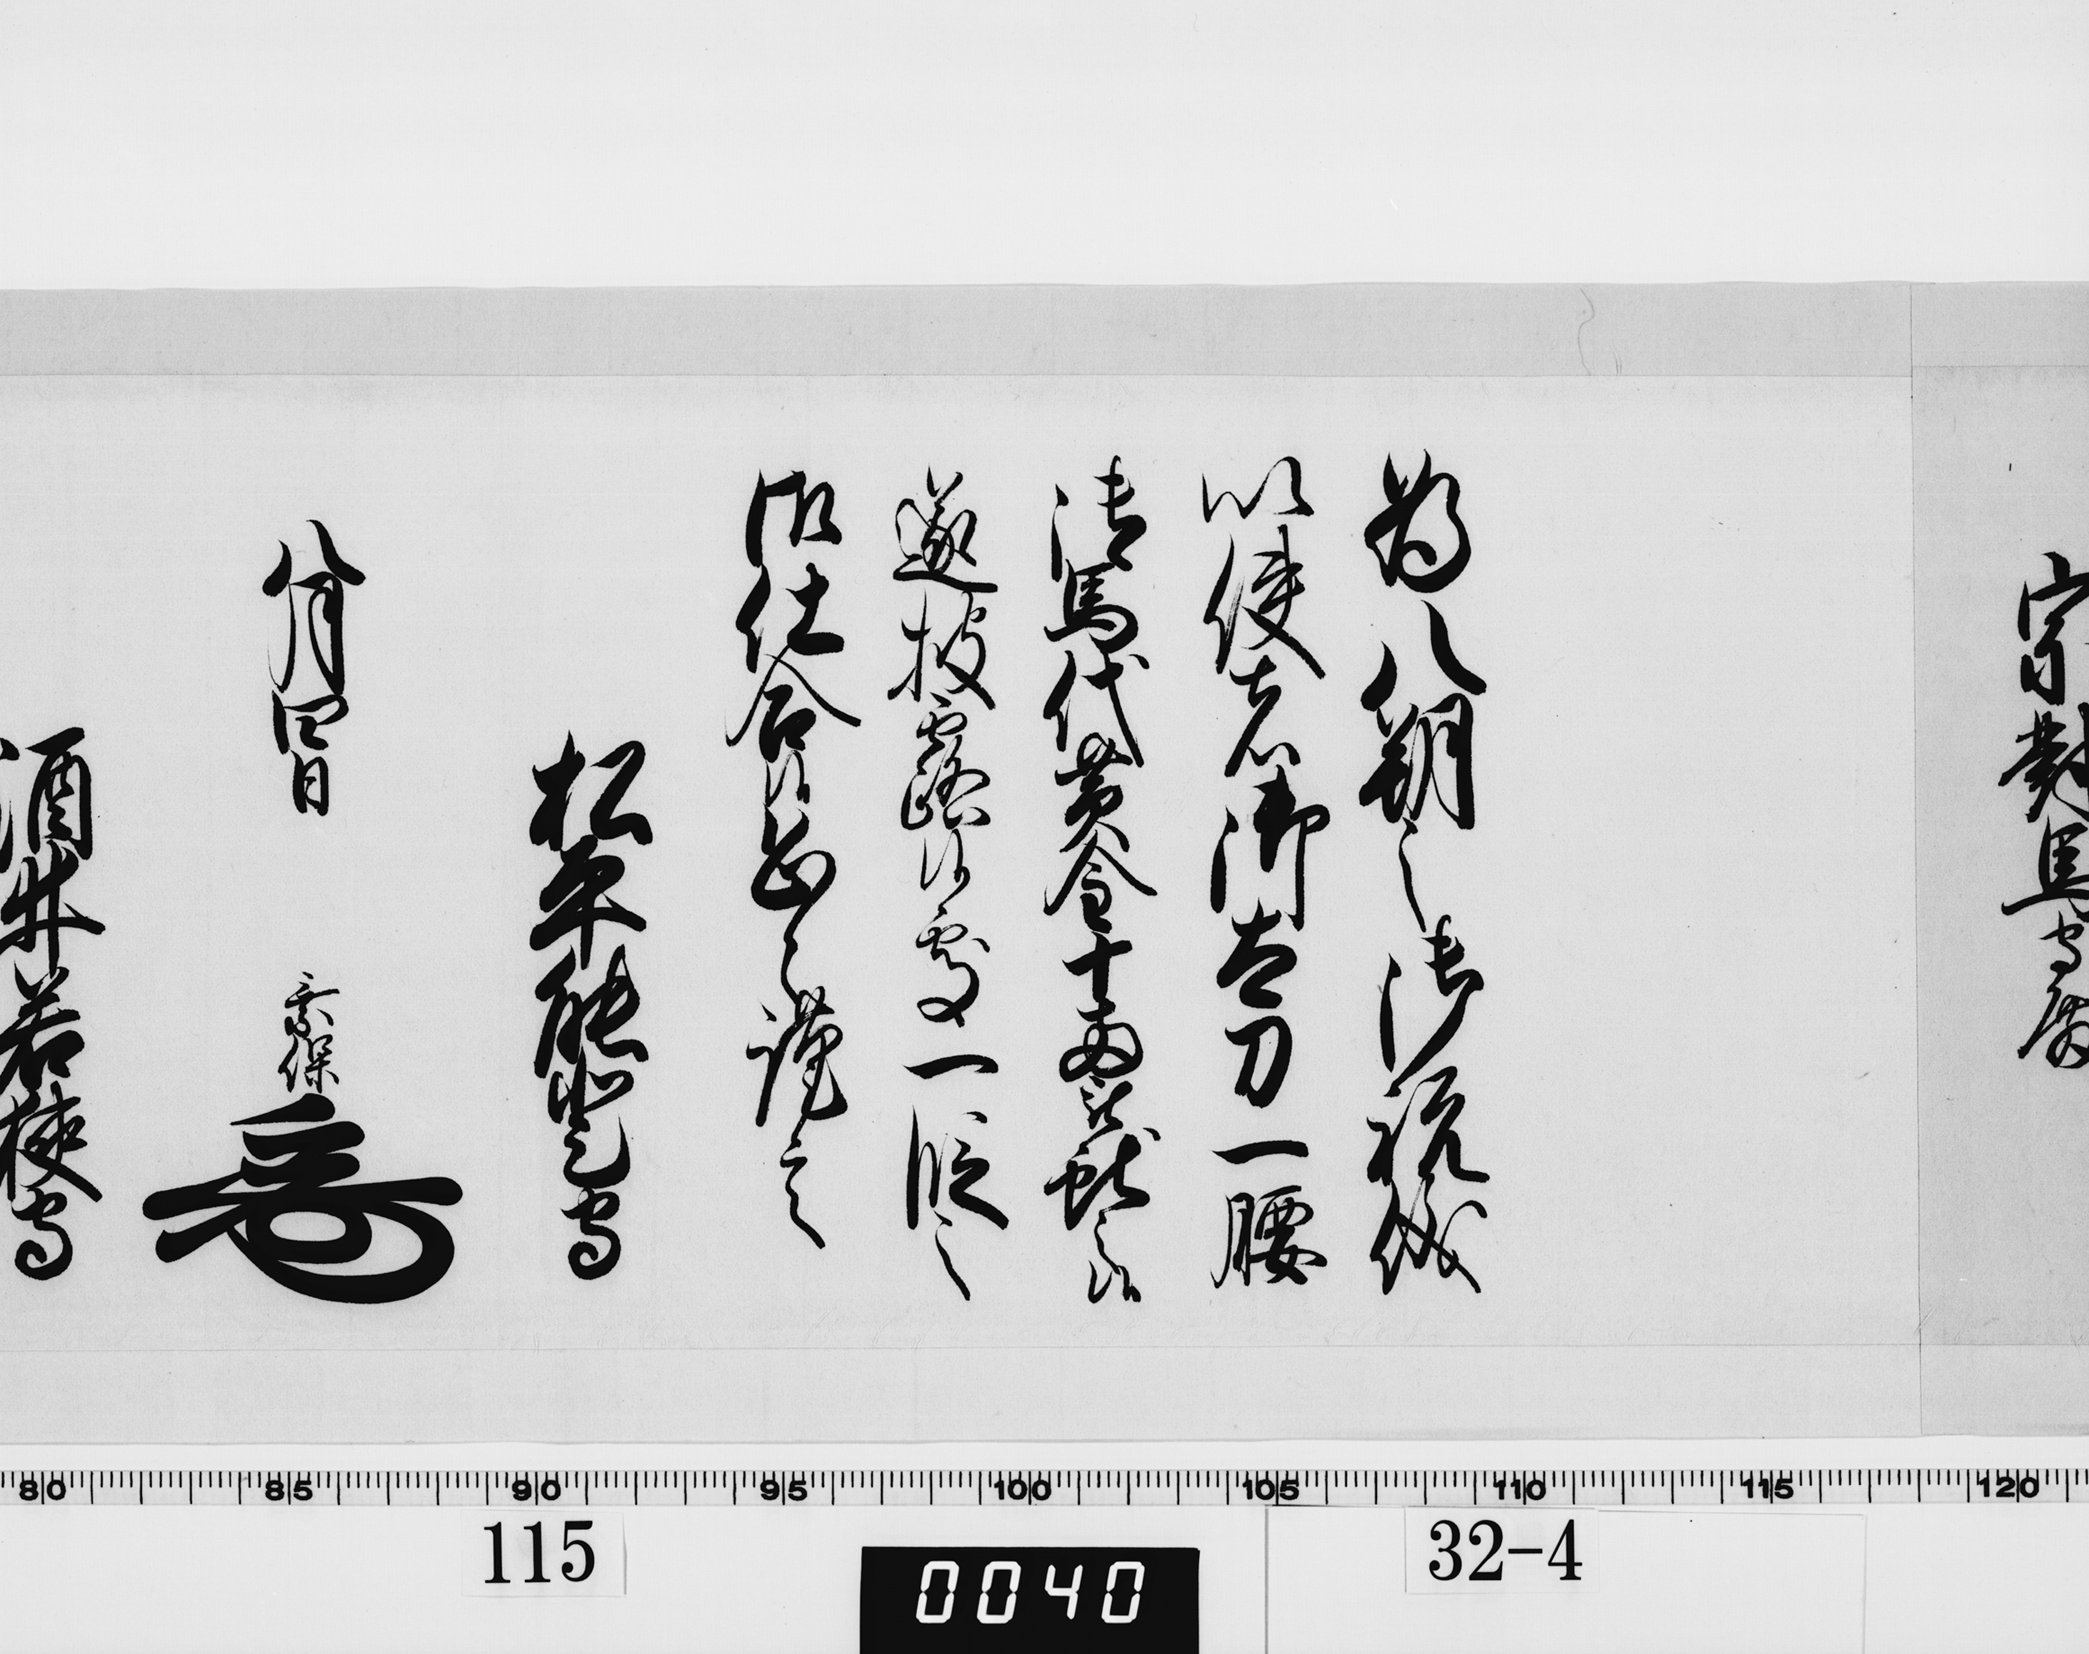 宗對馬守殿
為八朔之御祝儀
以使者御太刀一腰
御馬代黄金十両被獻之候
遂披露候處一段之
御仕合候恐々謹言
松平能登守
八月四日
乗保
酒井若狭守
80 85 90 95 100 105 110 115 120
115
0040
32-4